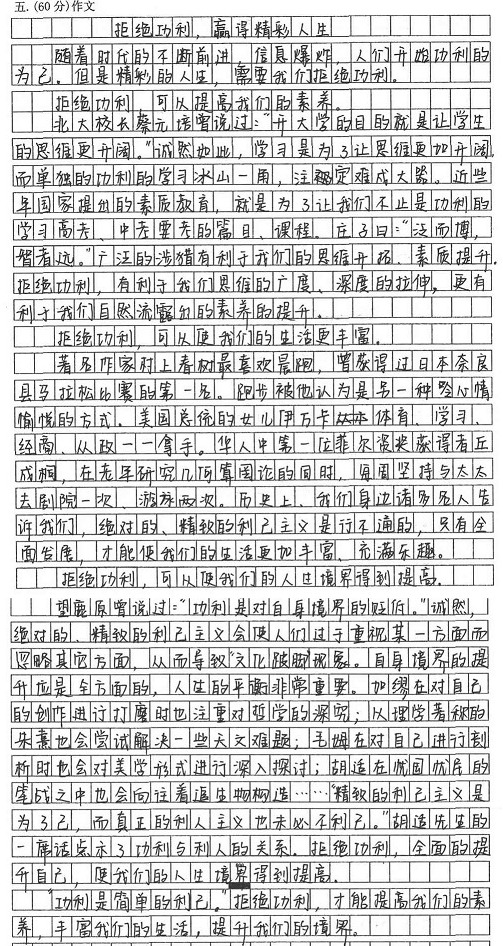 五.(60分)作文
拒绝功利,赢得精彩人生
随着时代的不断前进,信息爆炸,人们开始功利的
为己。但是精彩的人生,需要我们拒绝功利。
拒绝功利,可以提高我们的素养。
北大校长蔡元培曾说过:“开大学的目的就是让学生
的思维更开阔。”诚然如此,学习是为了让思维更加开阔,
而单独的功利的学习冰山一角,注定难成大器。近些
年国家提出的素质教育,就是为了让我们不止是功利的
学习高考、中考要考的篇目、课程。庄子曰:“泛而博,
智者远。”广泛的涉猎有利于我们的思维开拓、素质提升。
拒绝功利,有利于我们思维的广度、深度的拉伸,更有
利于我们自然流露出的素养的提升。
拒绝功利,可以使我们的生活更丰富。
著名作家村上春树最喜欢晨跑,曾获得过日本奈良
县马拉松比赛的第一名。跑步被他认为是另一种令心情
愉悦的方式。美国总统的女儿伊万卡 体育、学习、
经商、从政一一拿手。华人中第一位菲尔兹奖获得者丘
成桐,在老年研究几何算图论的同时,每周坚持与太太
去剧院一次、游泳两次。历史上、我们身边诸多名人告
诉我们,绝对的、精致的利己主义是行不通的,只有全
面发展,才能使我们的生活更加丰富、充满乐趣。
拒绝功利,可以使我们的人生境界得到提高。
望鹿原曾说过:“功利是对自身境界的贬低。”诚然,
绝对的、精致的利己主义会使人们过于重视某一方面而
忽略其它方面,从而导致“文化跛脚”现象。自身境界的提
升应是全方面的,人生的平衡非常重要。加缪在对自己
的创作进行打磨时也注重对哲学的深究;以理学著称的
朱熹也会尝试解决一些天文难题;毛姆在对自己进行剖
析时也会对美学形式进行深入探讨;胡适在忧国忧民的
笔战之中也会向往着远生物构造……“精致的利己主义是
为了己,而真正的利人主义也未必不利己。”胡适先生的
一席话点示了功利与利人的关系。拒绝功利,全面的提
升自己,使我们的人生境界得到提高。
“功利是简单的利己。”拒绝功利,才能提高我们的素
养,丰富我们的生活,提升我们的境界。